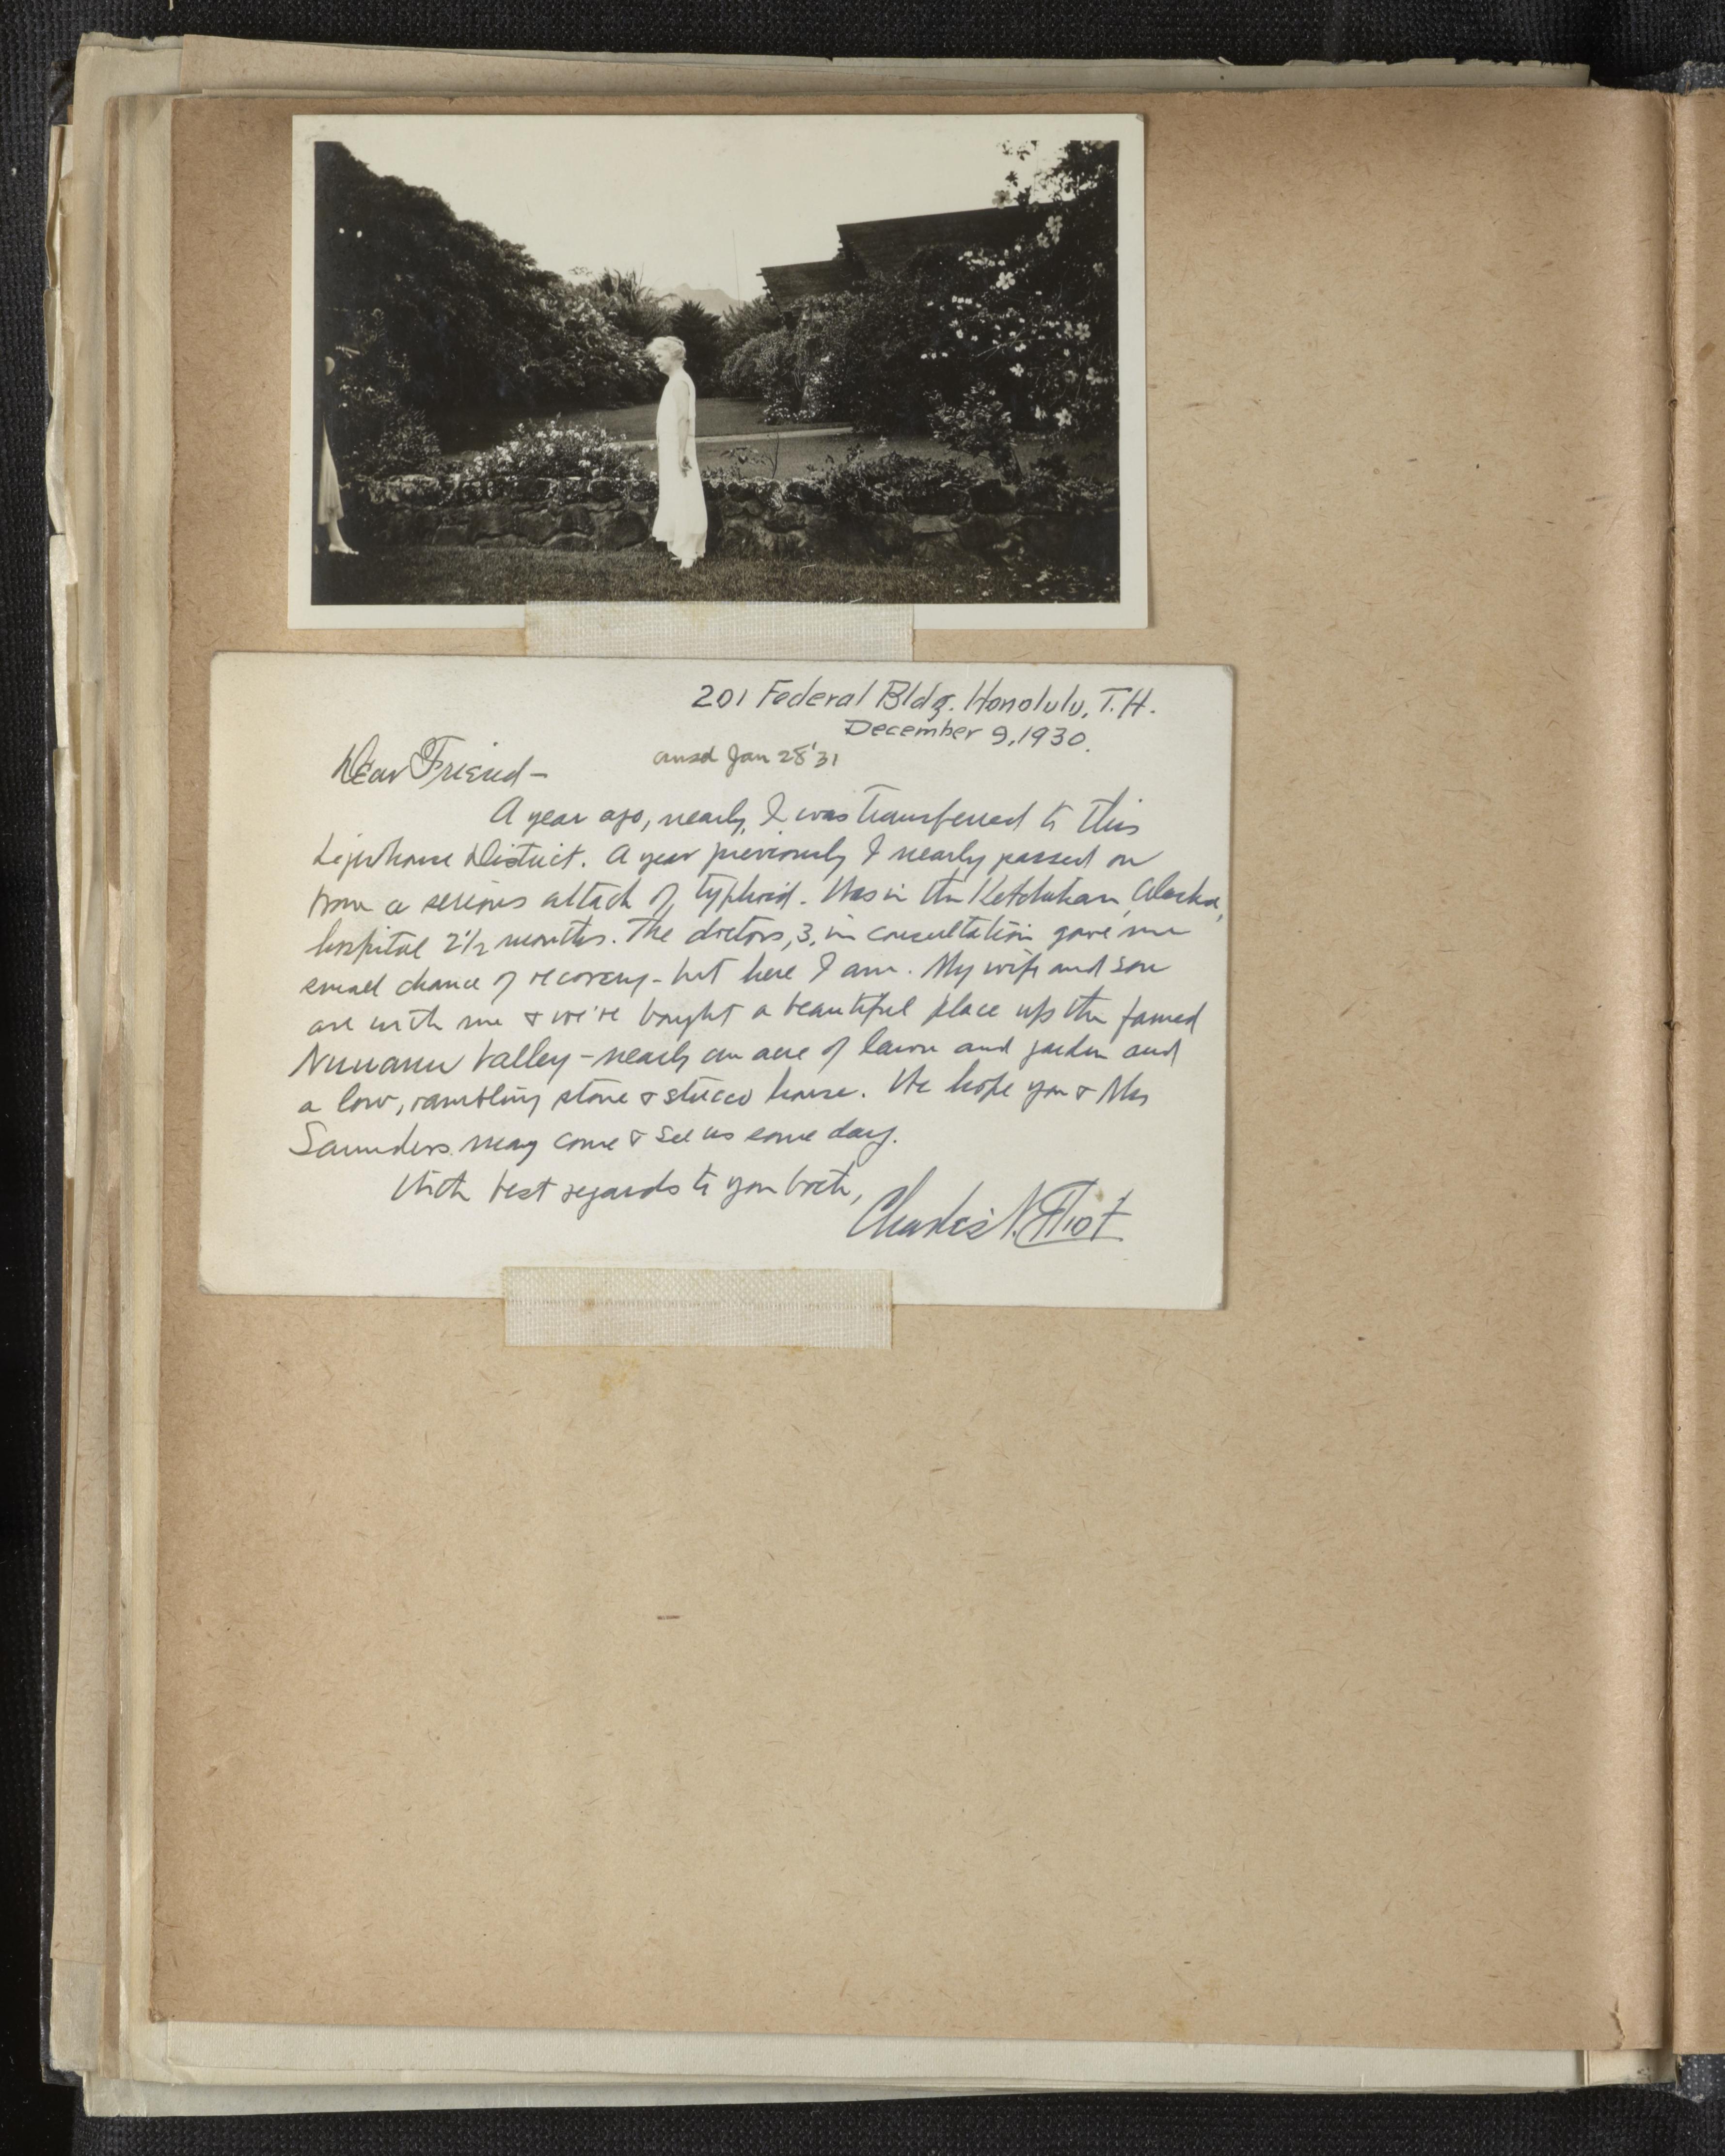 201 Federal Bldg. Honolulu, T.H.
December 9, 1930.
ansd Jan 28 '31
Dear Friend-
A year ago, nearly, I was transferred to this
Lighthouse District. A year previously I nearly passed on
from a serious attack of typhoid. Was in the Ketchikan, Alaska,
hospital 2 1/2 months. The doctors, 3, in consultation gave me
small chance of recovery - but here I am. My wife and son
are with me & we've bought a beautiful place up the famed
Nuuanu Valley - nearly an acre of lawn and garden and
a low, rambling stone & stucco house. We hope you & Mrs
Saunders may come & see us some day.
With best regards to you both,
Charles N. Elliot